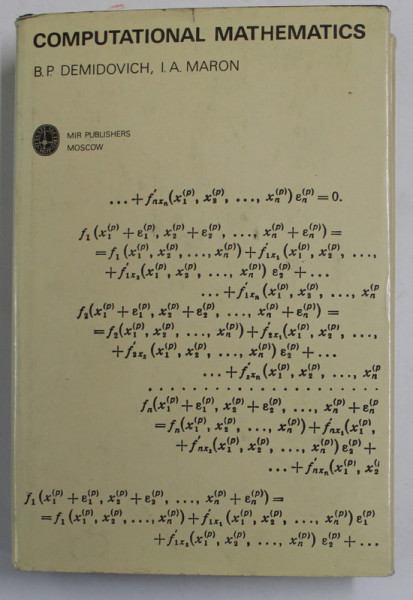 COMPUTATIONAL MATHEMATICS
B.P. DEMIDOVICH, I.A. MARON
MIR PUBLISHERS
MOSCOW
... + f′ₙₓₙ(x₁⁽ᵖ⁾, x₂⁽ᵖ⁾, ..., xₙ⁽ᵖ⁾) εₙ⁽ᵖ⁾ = 0.
f₁(x₁⁽ᵖ⁾ + ε₁⁽ᵖ⁾, x₂⁽ᵖ⁾ + ε₂⁽ᵖ⁾, ..., xₙ⁽ᵖ⁾ + εₙ⁽ᵖ⁾) =
= f₁(x₁⁽ᵖ⁾, x₂⁽ᵖ⁾, ..., xₙ⁽ᵖ⁾) + f′₁ₓ₁(x₁⁽ᵖ⁾, x₂⁽ᵖ⁾, ...,
+ f′₁ₓ₂(x₁⁽ᵖ⁾, x₂⁽ᵖ⁾, ..., xₙ⁽ᵖ⁾) ε₂⁽ᵖ⁾ + ...
... + f′₁ₓₙ(x₁⁽ᵖ⁾, x₂⁽ᵖ⁾, ..., xₙ⁽ᵖ
f₂(x₁⁽ᵖ⁾ + ε₁⁽ᵖ⁾, x₂⁽ᵖ⁾ + ε₂⁽ᵖ⁾, ..., xₙ⁽ᵖ⁾ + εₙ⁽ᵖ⁾) =
= f₂(x₁⁽ᵖ⁾, x₂⁽ᵖ⁾, ..., xₙ⁽ᵖ⁾) + f′₂ₓ₁(x₁⁽ᵖ⁾, x₂⁽ᵖ⁾, ...,
+ f′₂ₓ₂(x₁⁽ᵖ⁾, x₂⁽ᵖ⁾, ..., xₙ⁽ᵖ⁾) ε₂⁽ᵖ⁾ + ...
... + f′₂ₓₙ(x₁⁽ᵖ⁾, x₂⁽ᵖ⁾, ..., xₙ⁽ᵖ
. . . . . . . . . . . . . . . . . . . . . .
fₙ(x₁⁽ᵖ⁾ + ε₁⁽ᵖ⁾, x₂⁽ᵖ⁾ + ε₂⁽ᵖ⁾, ..., xₙ⁽ᵖ⁾ + εₙ⁽ᵖ
= fₙ(x₁⁽ᵖ⁾, x₂⁽ᵖ⁾, ..., xₙ⁽ᵖ⁾) + f′ₙₓ₁(x₁⁽ᵖ⁾,
+ f′ₙₓ₂(x₁⁽ᵖ⁾, x₂⁽ᵖ⁾, ..., xₙ⁽ᵖ⁾) ε₂⁽ᵖ⁾ +
... + f′ₙₓₙ(x₁⁽ᵖ⁾, x₂⁽
f₁(x₁⁽ᵖ⁾ + ε₁⁽ᵖ⁾, x₂⁽ᵖ⁾ + ε₂⁽ᵖ⁾, ..., xₙ⁽ᵖ⁾ + εₙ⁽ᵖ⁾) =
= f₁(x₁⁽ᵖ⁾, x₂⁽ᵖ⁾, ..., xₙ⁽ᵖ⁾) + f′₁ₓ₁(x₁⁽ᵖ⁾, x₂⁽ᵖ⁾, ..., xₙ⁽ᵖ⁾) ε₁⁽ᵖ⁾
+ f′₁ₓ₂(x₁⁽ᵖ⁾, x₂⁽ᵖ⁾, ..., xₙ⁽ᵖ⁾) ε₂⁽ᵖ⁾ + ...